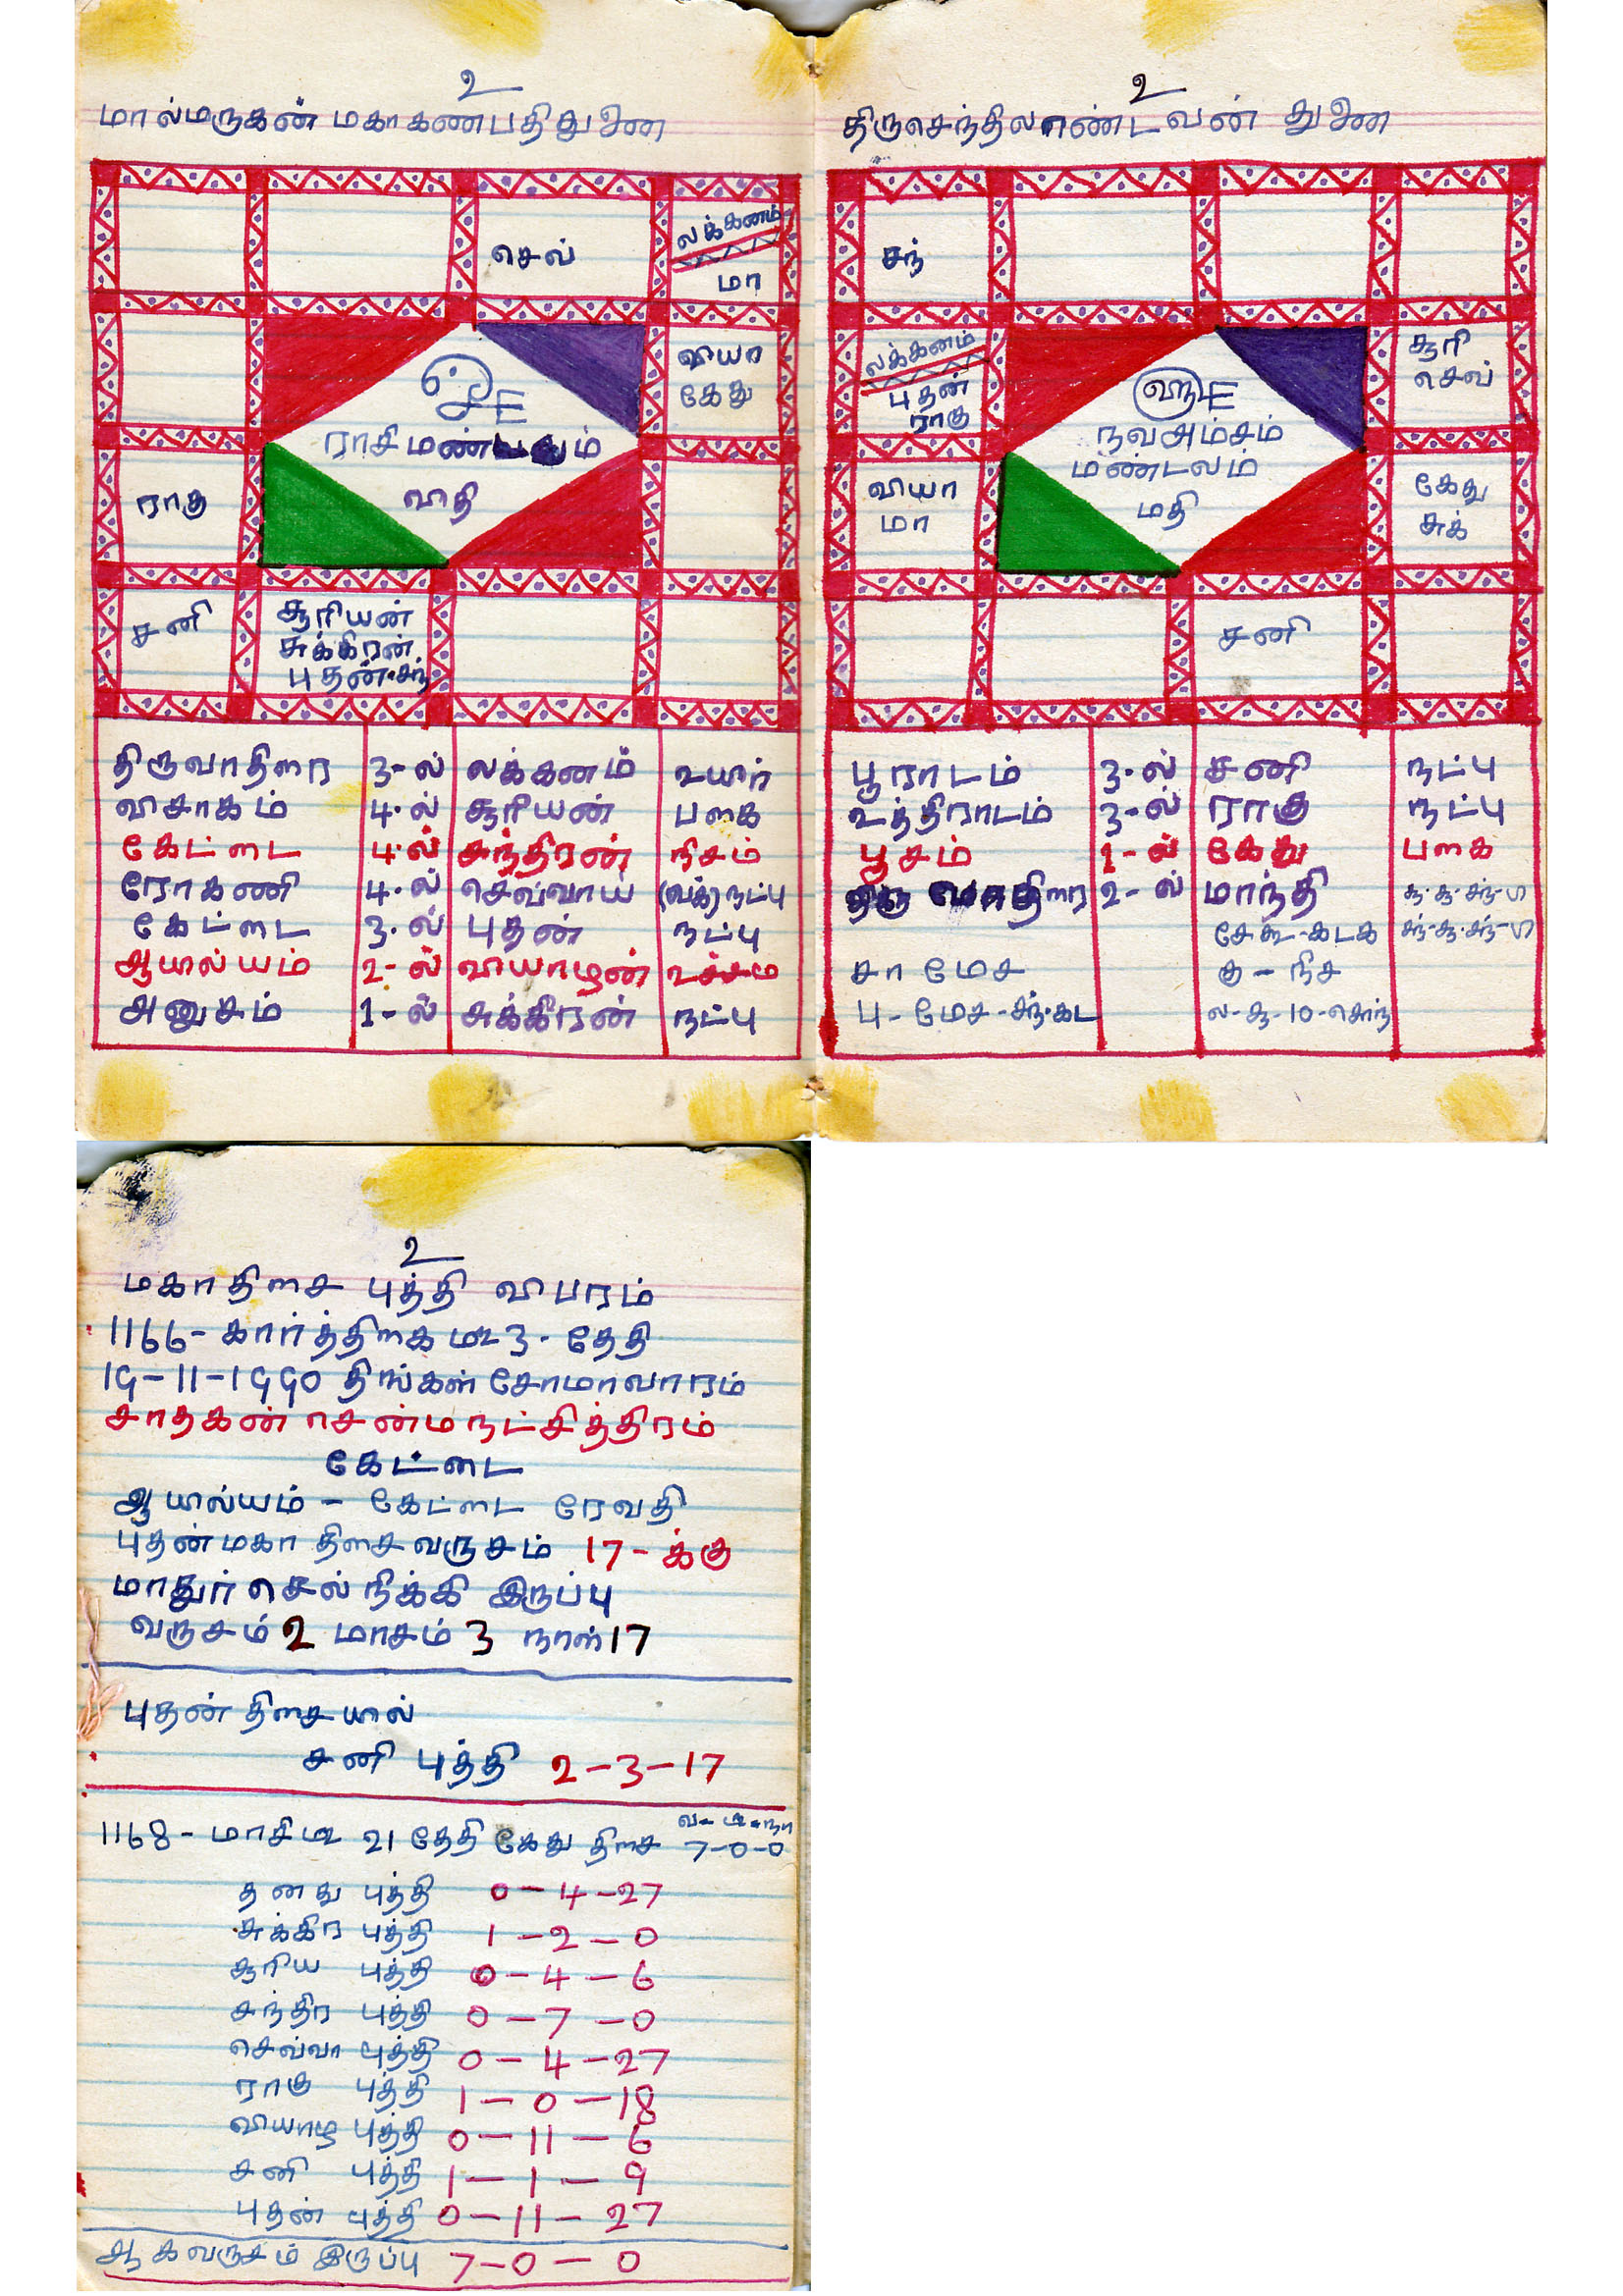 உ
மால்மருகன் மகாகணபதி துணை
செவ்
லக்கனம்
மா
வியா
கேது
ராசிமண்டலம்
ராகு
சனி
சூரியன்
சுக்கிரன்
புதன்·சந்
திருவாதிரை 3-ல் லக்கனம் உயிர்
விசாகம் 4-ல் சூரியன் பகை
கேட்டை 4-ல் சந்திரன் நிசம்
ரோகணி 4-ல் செவ்வாய் (வக்) நட்பு
கேட்டை 3-ல் புதன் நட்பு
ஆயில்யம் 2-ல் வியாழன் உச்சம
அனுசம் 1-ல் சுக்கிரன் நட்பு
உ
திருசெந்திலாண்டவன் துணை
சந்
லக்கனம்
புதன்
ராகு
சூரி
செவ்
நவஅம்சம்
மண்டலம்
மதி
வியா
மா
கேது
சுக்
சனி
பூராடம் 3-ல் சனி நட்பு
உத்திராடம் 3-ல் ராகு நட்பு
பூசம் 1-ல் கேது பகை
2-ல் மாந்தி
சா மேச கு - நிச
பு - மேச - சந்·கட
உ
மகாதிசை புத்தி விபரம்
1166- கார்த்திகை மீ 3- தேதி
19-11-1990 திங்கள் சோமாவாரம்
சாதகன் சென்மநட்சித்திரம்
கேட்டை
ஆயில்யம் - கேட்டை ரேவதி
புதன்மகா திசைவருசம் 17-க்கு
மாதுர் செல்நிக்கி இருப்பு
வருசம் 2 மாசம் 3 நாள் 17
புதன் திசையில்
சனி புத்தி 2-3-17
வ- மீ-நா
1168- மாசிமீ 21 தேதி கேது திசை 7-0-0
தனது புத்தி 0-4-27
சுக்கிர புத்தி 1-2-0
சூரிய புத்தி 0-4-6
சந்திர புத்தி 0-7-0
செவ்வா புத்தி 0-4-27
ராகு புத்தி 1-0-18
வியாழ புத்தி 0-11-6
சனி புத்தி 1-1-9
புதன் புத்தி 0-11-27
ஆகவருசம் இருப்பு 7-0-0